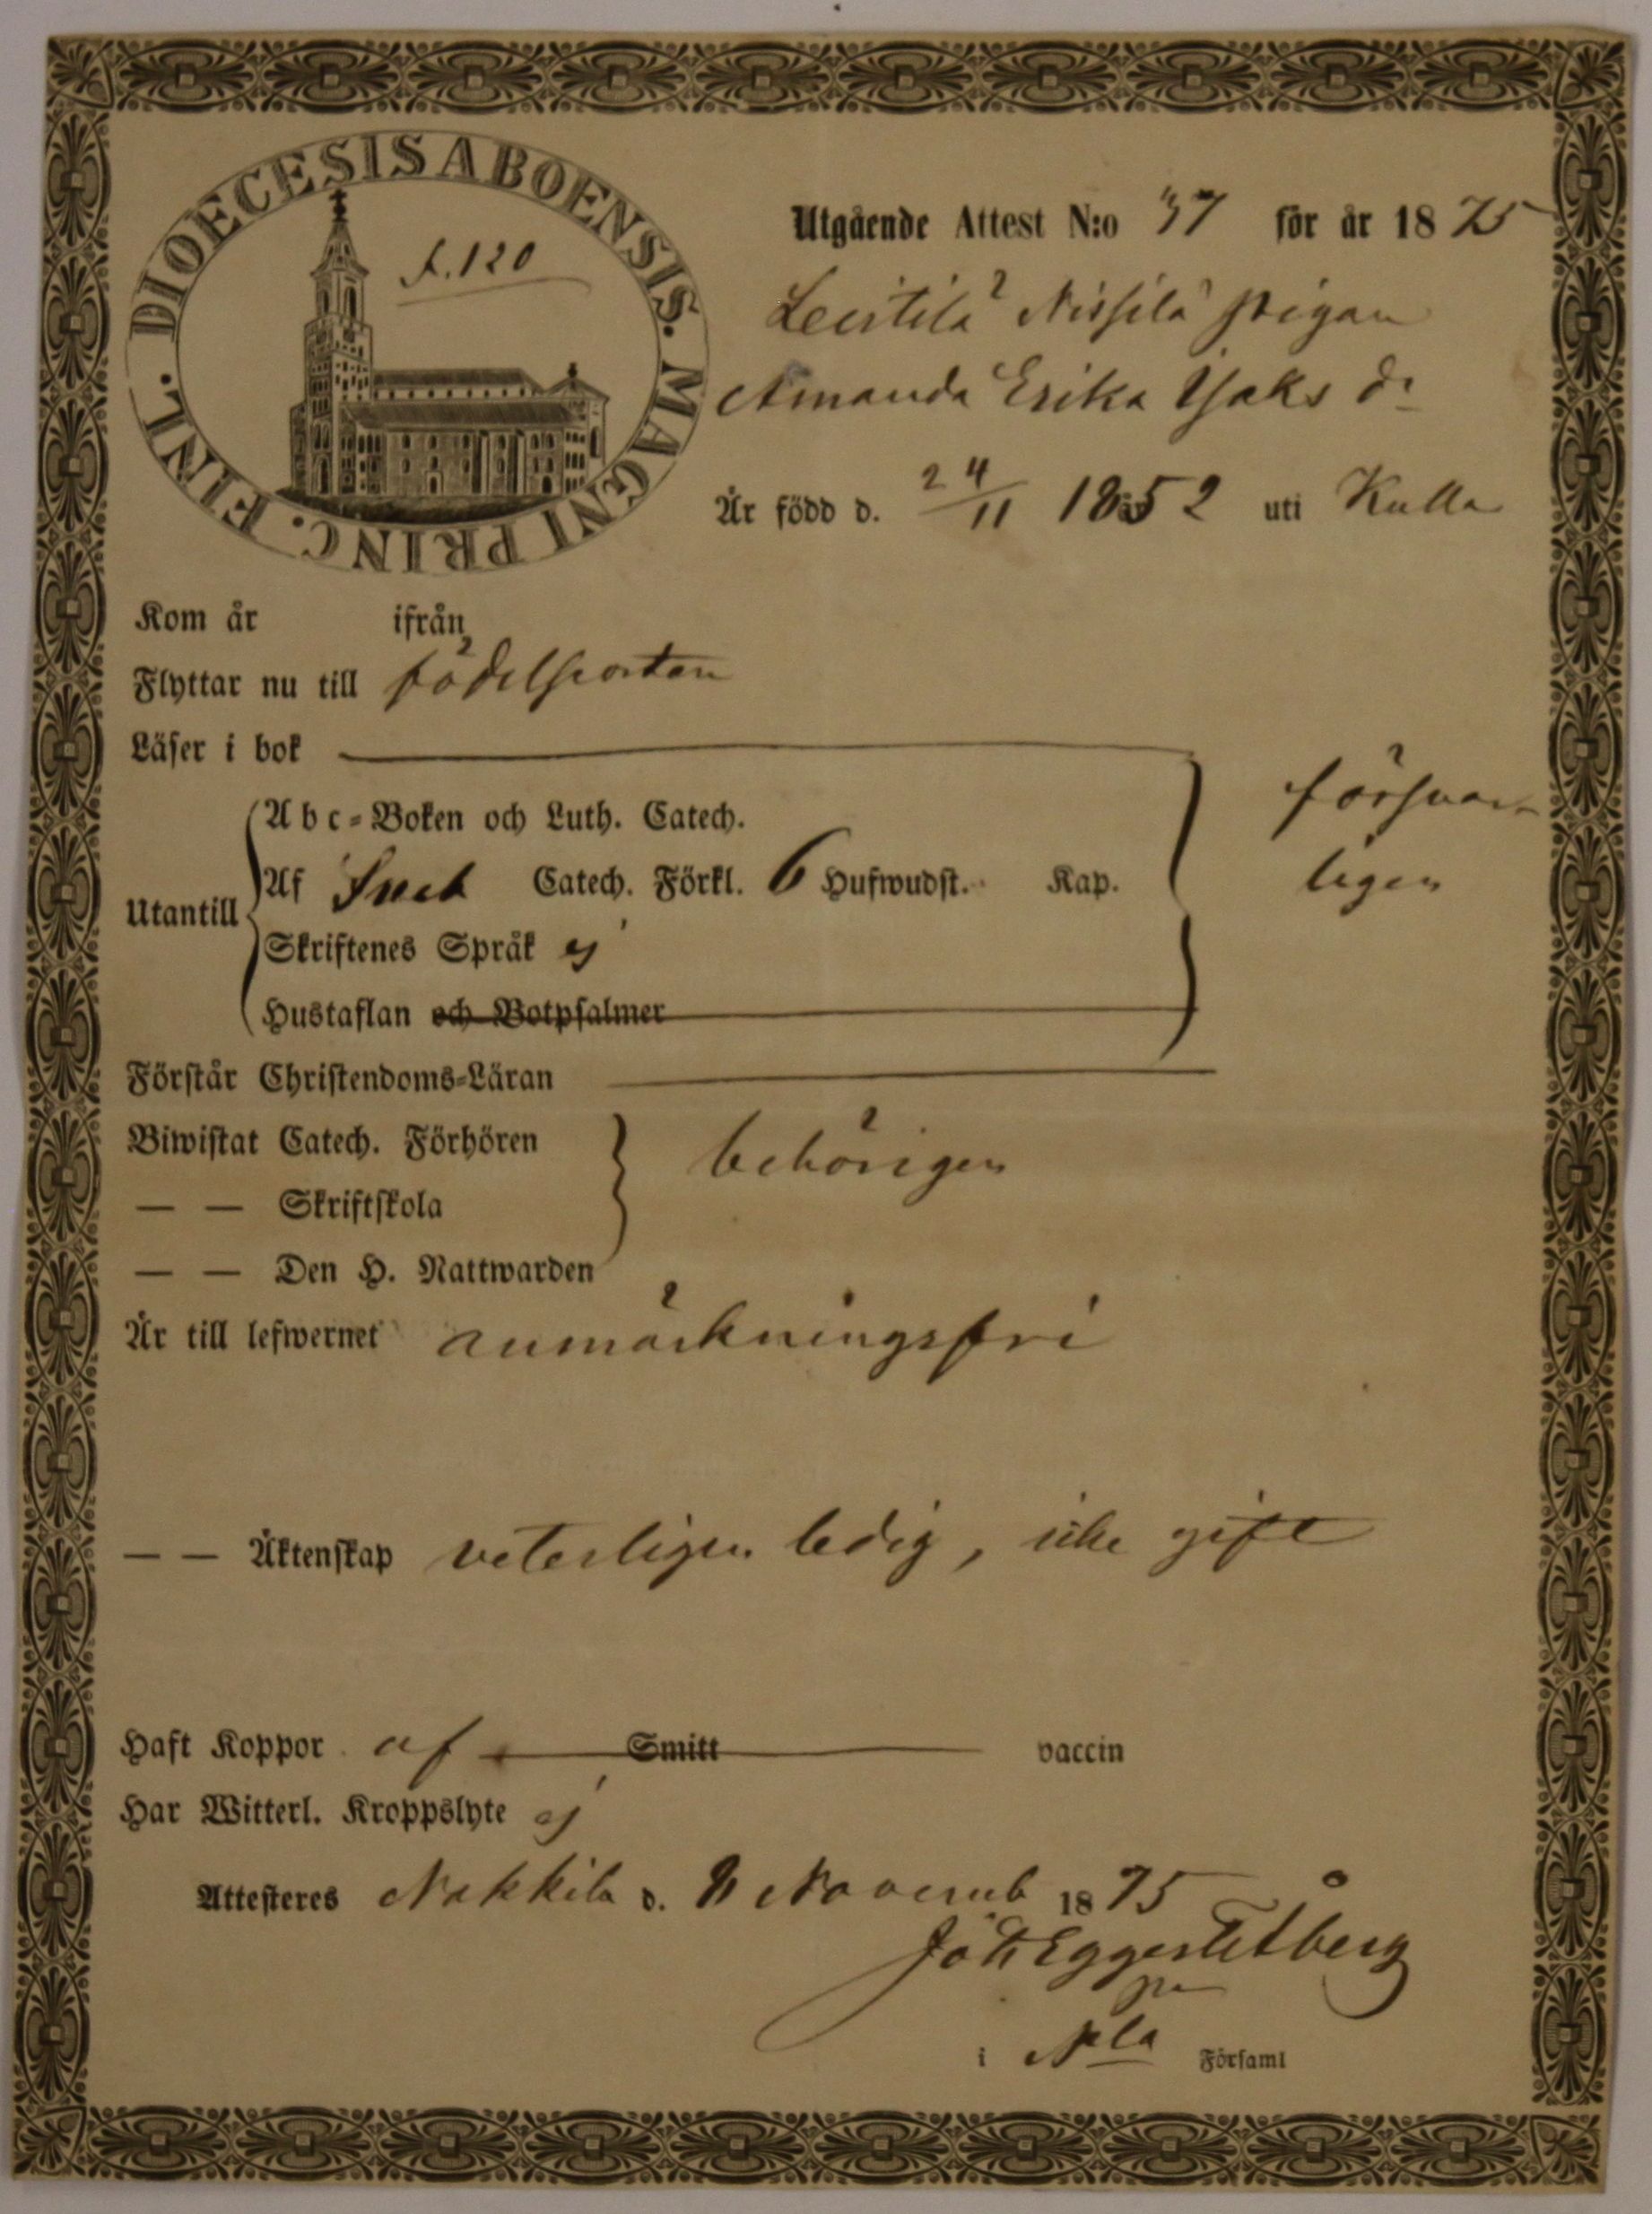 DIOECESIS ABOENSIS. MAGNI PRINC. FINL.
f. 120
Utgående Attest N:o 37 för år 1875
Leistilä Nissilä pigan
Amanda Erika Isaks dr
Är född d. 24/11 1852 uti Kulla
Kom år ifrån
Flyttar nu till födelseorten
Läser i bok
försvar-
Abc-Boken och Luth. Catech.
Utantill
Af Sveb Catech. Förkl. 6 Hufwudst. Kap.
ligen
Skriftenes Språk ej
Hustaflan och Botpsalmer
Förstår Christendoms-Läran
Biwistat Catech. Förhören
behörigen
— — Skriftskola
— — Den H. Nattwarden
Är till lefwernet anmärkningsfri
— — Äktenskap veterligen ledig, icke gift
Haft Koppor af Smitt vaccin
Har Witterl. Kroppslyte ej
Attesteres Nakkila d. Novemb 1875
i Nla Församl